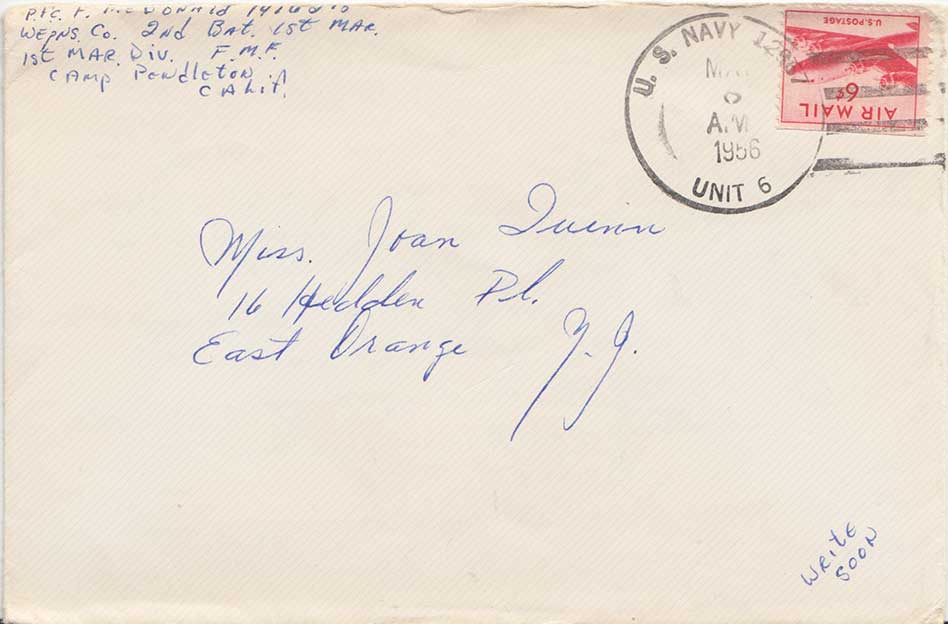 Pfc. F. McDonald
WEPNS. Co. 2nd Bat. 1st MAR.
1st MAR. Div. F.M.F.
CAMP PENdLEtoN
CALif.
U. S. NAVY
A.M
1956
UNIT 6
U.S. POSTAGE
6¢
AIR MAIL
Miss. Joan Quinn
16 Hedden Pl.
East Orange N.J.
WRitE
SOON